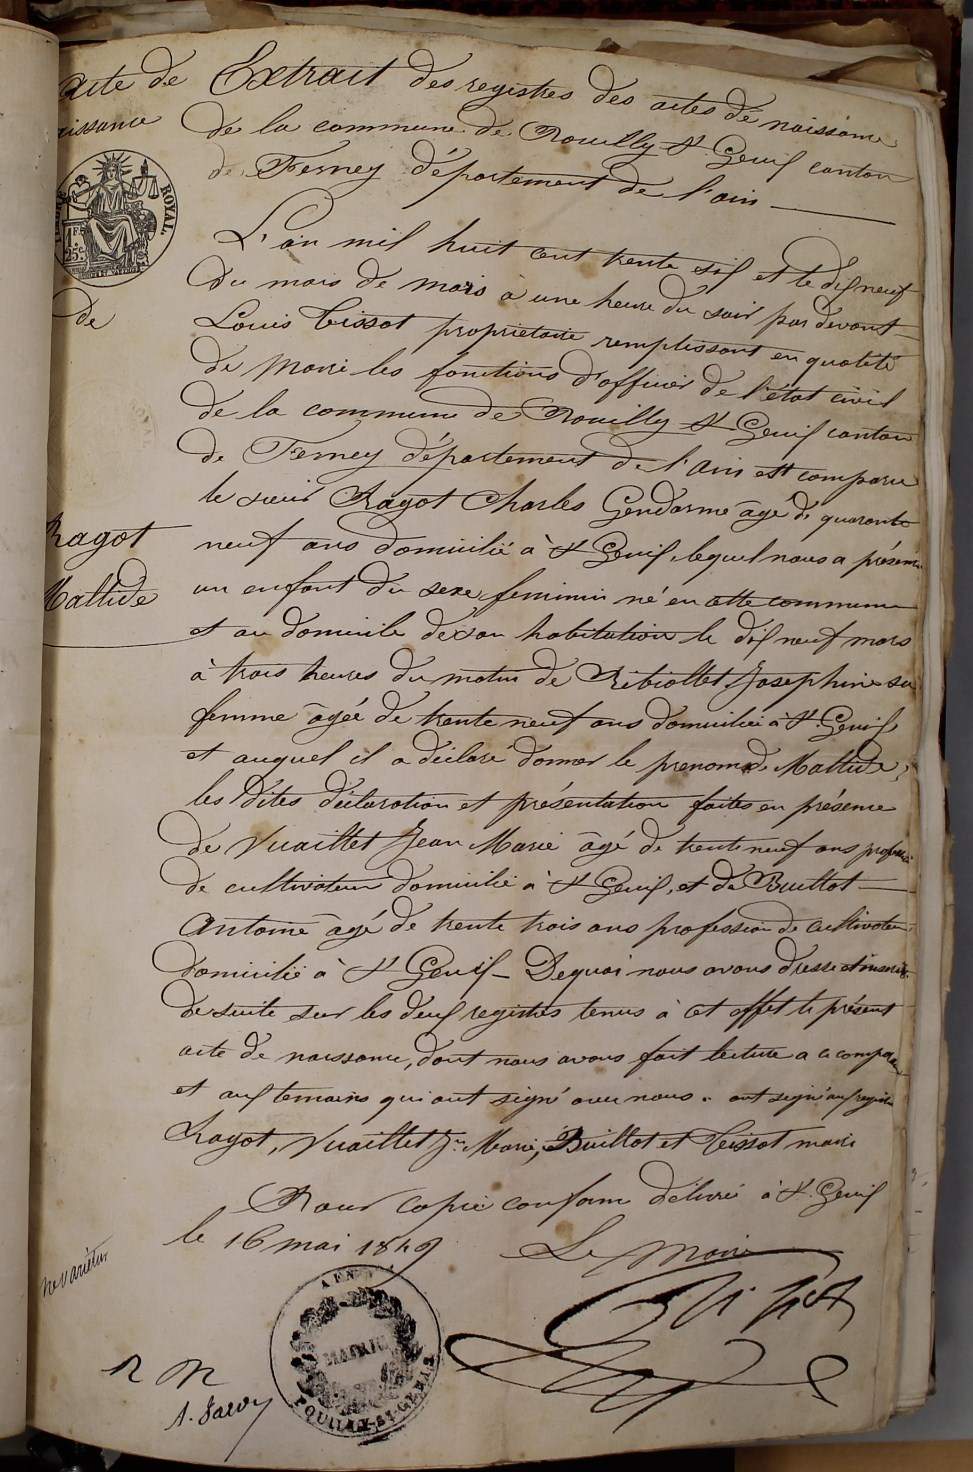 acte de
naissance
ROYAL.
1 F.
25 c.
de
Ragot
Maltide
Extrait des registres des actes de naissance
de la commune de Pouilly St Genis canton
de Ferney département de l'ain
L'an mil huit cent trente six et le dix neuf
du mois de mars à une heure du soir par devant
Louis Tissot propriétaire remplissant en qualité
de Maire les fonctions d'officier de l'état civil
de la commune de Pouilly St Genix canton
de Ferney département de l'Ain est comparu
le sieur Ragot Charles Gendarme âgé de quarante
neuf ans domicilié à St Genix, lequel nous a présenté
un enfant du sexe féminin né en cette commune
et au domicile de son habitation le dix neuf mars
à trois heures du matin de Ribiollet Josephine sa
femme âgée de trente neuf ans domiciliée à St. Genix
et auquel il a déclaré donner le prenom de Maltide,
les dites déclaration et présentation faites en présence
de Vuaillet Jean Marie âgé de trente neuf ans profession
de cultivateur domicilié à St Genix, et de Buillot
Antoine âgé de trente trois ans profession de cultivateur
domicilié à St Genix – De quoi nous avons dressé et inscrit
de suite sur les deux registres tenus à cet effet le présent
acte de naissance, dont nous avons fait lecture a ce comparu
et aux temoins qui ont signé avec nous. ont signé au registre
Ragot, Vuaillet Jn Marie, Buillot et Tissot maire
Pour copie conforme délivré à St. Genix
le 16 mai 1849 Le Maire
ne varietur
AIN
MAIRIE
POUILLY-ST-GENIX